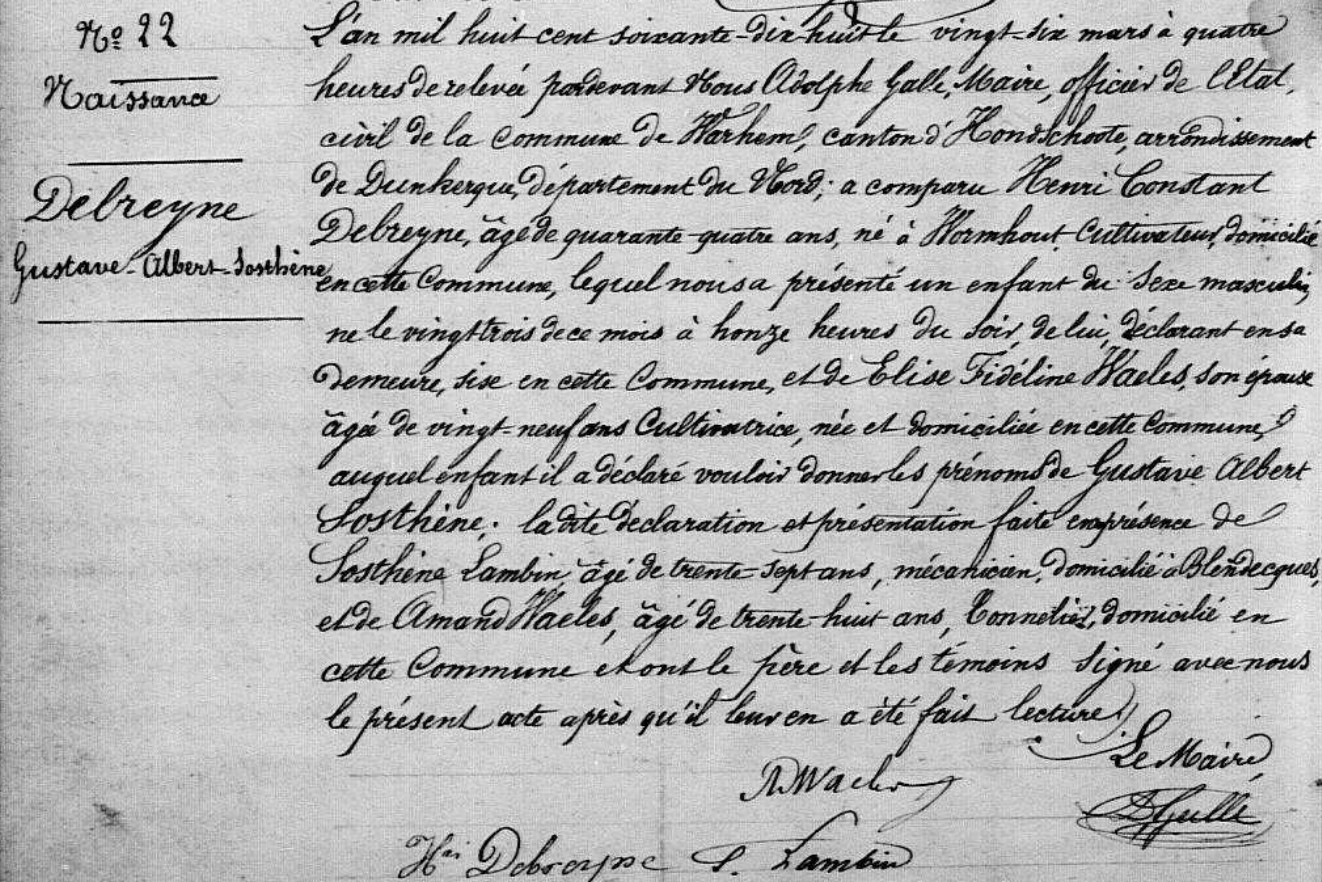 Nº 22
Naissance
Debreyne
Gustave-Albert-Sosthène
L'an mil huit cent soixante-dix huit le vingt-six mars à quatre
heures de relevée pardevant Nous Adolphe Galle, Maire, officier de l'Etat,
civil de la commune de Warhem, canton d'Hondschoote, arrondissement
de Dunkerque, département du Nord; a comparu Henri Constant
Debreyne, âgé de quarante-quatre ans, né à Wormhout, Cultivateur, domicilié
en cette Commune, lequel nous a présenté un enfant du Sexe masculin,
ne le vingt trois de ce mois à honze heures du soir, de lui, déclarant en sa
demeure, sise en cette Commune, et de Elise Fidéline Waeles, son épouse
âgée de vingt-neuf ans Cultivatrice, née et domiciliée en cette Commune,
auquel enfant il a déclaré vouloir donner les prénoms de Gustave Albert
Sosthène; la dite déclaration et présentation faite en présence de
Sosthène Lambin, âgé de trente-sept ans, mécanicien, domicilié à Blendecques,
et de Amand Waeles, âgé de trente-huit ans, Tonnelier, domicilié en
cette Commune et ont le père et les témoins signé avec nous
le présent acte après qu'il leur en a été fait lecture.
Le Maire,
A Waeles
Hri Debreyne S. Lambin